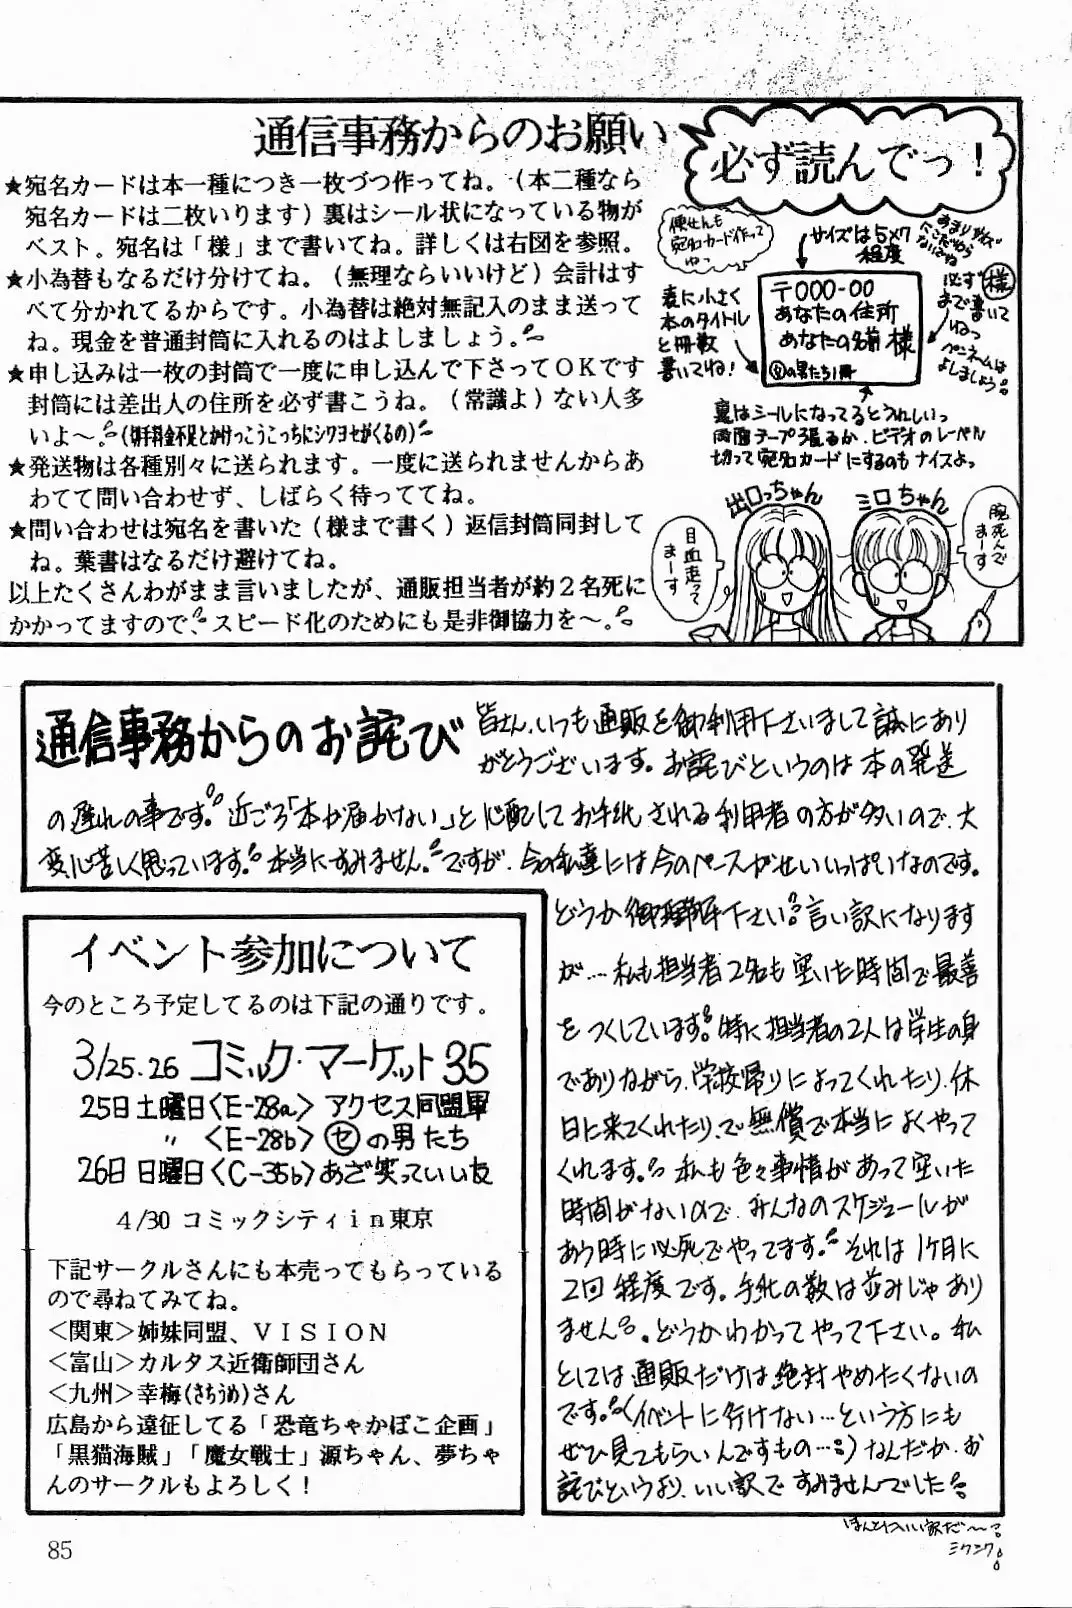 通信事務からのお願い
必ず読んでっ！
★宛名カードは本一種につき一枚づつ作ってね。（本二種なら
宛名カードは二枚いります）裏はシール状になっている物が
ベスト。宛名は「様」まで書いてね。詳しくは右図を参照。
★小為替もなるだけ分けてね。（無理ならいいけど）会計はす
べて分かれてるからです。小為替は絶対無記入のまま送って
ね。現金を普通封筒に入れるのはよしましょう。
★申し込みは一枚の封筒で一度に申し込んで下さってＯＫです
封筒には差出人の住所を必ず書こうね。（常識よ）ない人多
いよ〜。(切手料金不足とかけっこうこっちにシワヨセがくるの)
★発送物は各種別々に送られます。一度に送られませんからあ
わてて問い合わせず、しばらく待っててね。
★問い合わせは宛名を書いた（様まで書く）返信封筒同封して
ね。葉書はなるだけ避けてね。
以上たくさんわがまま言いましたが、通販担当者が約２名死に
かかってますので、スピード化のためにも是非御協力を〜。
便せんも
宛名カード作って
ねっ
サイズは5×7
程度
あまりサイズ
にこだわら
ないでね
必ず様
まで書いて
ねっ
ペンネームは
よしましょう
表に小さく
本のタイトル
と冊数
書いてね！
〒000-00
あなたの住所
あなたの名前 様
㋝の男たち1冊
裏はシールになってるとうれしいっ
両面テープ張るか、ビデオのレーベル
切って宛名カードにするのもナイスよっ
出口っちゃん
ミロちゃん
目血走って
まーす
腕死んで
まーす
通信事務からのお詫び
皆さん、いつも通販を御利用下さいまして誠にあり
がとうございます。お詫びというのは本の発送
の遅れの事です。近ごろ「本が届かない」と心配してお手紙される利用者の方が多いので、大
変心苦しく思っています。本当にすみません。ですが、今の私達には今のペースがせいいっぱいなのです。
どうか御理解下さい。言い訳になります
が…私も担当者2名も空いた時間で最善
をつくしています。特に担当者の2人は学生の身
でありながら、学校帰りによってくれたり、休
日に来てくれたり、で無償で本当によくやって
くれます。私も色々事情があって空いた
時間がないので、みんなのスケジュールが
あう時に必死でやってます。それは1ケ月に
2回程度です。手紙の数は並みじゃあり
ません。どうかわかってやって下さい。私
としては通販だけは絶対やめたくないの
です。(イベントに行けない…という方にも
ぜひ見てもらいんですもの…)なんだか、お
詫びというより、いい訳ですみませんでした
ほんとにいい訳だ〜
ミクニク
イベント参加について
今のところ予定してるのは下記の通りです。
3/25.26 コミック・マーケット35
25日土曜日〈E-28a〉アクセス同盟軍
〃 〈E-28b〉㋝の男たち
26日日曜日〈C-35b〉あざ笑っていい友
４/30 コミックシティｉｎ東京
下記サークルさんにも本売ってもらっている
ので尋ねてみてね。
＜関東＞姉妹同盟、ＶＩＳＩＯＮ
＜富山＞カルタス近衛師団さん
＜九州＞幸梅(さちうめ)さん
広島から遠征してる「恐竜ちゃかぽこ企画」
「黒猫海賊」「魔女戦士」源ちゃん、夢ちゃ
んのサークルもよろしく！
85